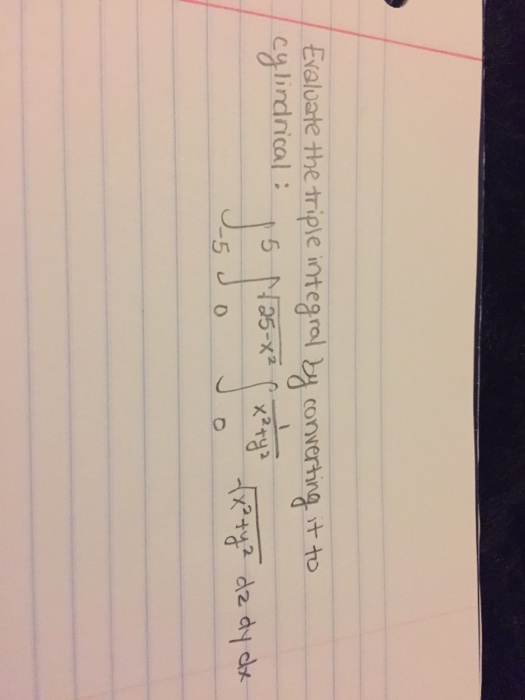 Evaluate the triple integral by converting it to
cylindrical:
∫_{-5}^{5} ∫_{0}^{√(25-x²)} ∫_{0}^{1/(x²+y²)} √(x²+y²) dz dy dx